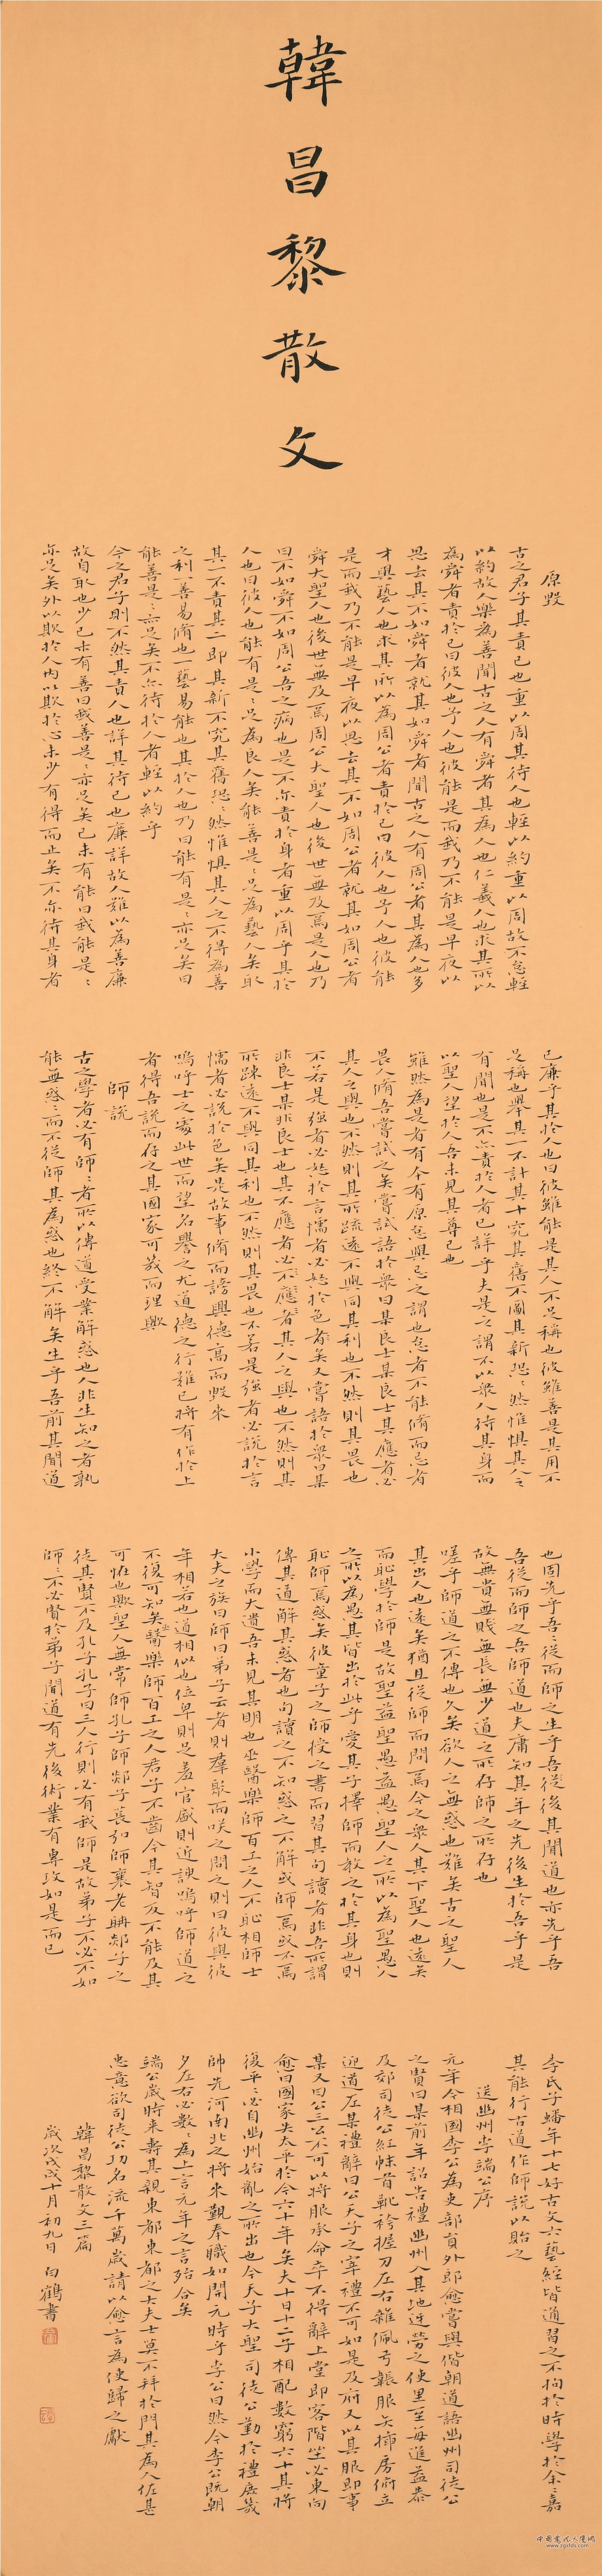 韓昌黎散文
原毀
古之君子其責己也重以周其待人也輕以約重以周故不怠輕
以約故人樂為善聞古之人有舜者其為人也仁義人也求其所以
為舜者責於己曰彼人也予人也彼能是而我乃不能是早夜以
思去其不如舜者就其如舜者聞古之人有周公者其為人也多
才與藝人也求其所以為周公者責於己曰彼人也予人也彼能
是而我乃不能是早夜以思去其不如周公者就其如周公者
舜大聖人也後世無及焉周公大聖人也後世無及焉是人也乃
曰不如舜不如周公吾之病也是不亦責於身者重以周乎其於
人也曰彼人也能有是〻足為良人矣能善是〻足為藝人矣取
其一不責其二即其新不究其舊恐〻然惟懼其人之不得為善
之利一善易脩也一藝易能也其於人也乃曰能有是〻亦足矣曰
能善是〻亦足矣不亦待於人者輕以約乎
今之君子則不然其責人也詳其待己也廉詳故人難以為善廉
故自取也少己未有善曰我善是〻亦足矣己未有能曰我能是〻
亦足矣外以欺於人內以欺於心未少有得而止矣不亦待其身者
已廉乎其於人也曰彼雖能是其人不足稱也彼雖善是其用不
足稱也舉其一不計其十究其舊不圖其新恐〻然惟懼其人之
有聞也是不亦責於人者已詳乎夫是之謂不以眾人待其身而
以聖人望於人吾未見其尊己也
雖然為是者有本有原怠與忌之謂也怠者不能脩而忌者
畏人脩吾嘗試之矣嘗試語於眾曰某良士某良士其應者必
其人之與也不然則其所疏遠不與同其利也不然則其畏也
不若是強者必怒於言懦者必怒於色者矣又嘗語於眾曰某
非良士某非良士也其不應者必不應者其人之與也不然則其
所疎遠不與同其利也不然則其畏也不若是強者必說於言
懦者必說於色矣是故事脩而謗興德高而毀來
嗚呼士之處此世而望名譽之尤道德之行難已將有作於上
者得吾說而存之其國家可幾而理歟
師說
古之學者必有師〻者所以傳道受業解惑也人非生知之者孰
能無惑〻而不從師其為惑也終不解矣生乎吾前其聞道
也固先乎吾〻從而師之生乎吾後其聞道也亦先乎吾
吾從而師之吾師道也夫庸知其年之先後生於吾乎是
故無貴無賤無長無少道之所存師之所存也
嗟乎師道之不傳也久矣欲人之無惑也難矣古之聖人
其出人也遠矣猶且從師而問焉今之眾人其下聖人也遠矣
而恥學於師是故聖益聖愚益愚聖人之所以為聖愚人
之所以為愚其皆出於此乎愛其子擇師而教之於其身也則
恥師焉惑矣彼童子之師授之書而習其句讀者非吾所謂
傳其道解其惑者也句讀之不知惑之不解或師焉或不焉
小學而大遺吾未見其明也巫醫樂師百工之人不恥相師士
大夫之族曰師曰弟子云者則羣聚而咲之問之則曰彼與彼
年相若也道相似也位卑則足羞官盛則近諛嗚呼師道之
不復可知矣巫醫樂師百工之人君子不齒今其智乃不能及其
可恠也歟聖人無常師孔子師郯子萇弘師襄老聃郯子之
徒其賢不及孔子孔子曰三人行則必有我師是故弟子不必不如
師〻不必賢於弟子聞道有先後術業有專攻如是而已
李氏子蟠年十七好古文六藝經皆通習之不拘於時學於余〻嘉
其能行古道作師說以貽之
送幽州李端公序
元年今相國李公為吏部員外郎愈嘗與偕朝道語幽州司徒公
之賢曰某前年詔告禮幽州入其地迓勞之使里至每進益恭
及郊司徒公紅帓首鞾袴握刀左右雜佩弓韔服矢插房俯立
迎道左某禮辭曰公天子之宰禮不可如是及府又以其服即事
某又曰公三公不可以將服承命卒不得辭上堂即客階坐必東向
愈曰國家失太平於今六十年矣夫十日十二子相配數窮六十其將
復平〻必自幽州始亂之所出也今天子大聖司徒公勤於禮庶幾
帥先河南北之將來覲奉職如開元時乎李公曰然今李公既朝
夕左右必數〻為上言元年之言殆合矣
端公歲時來壽其親東都東都之大夫士莫不拜於門其為人佐甚
忠意欲司徒公功名流千萬歲請以愈言為使歸之獻
韓昌黎散文三篇
歲次戊戌十月初九日 白鶴書
www.zgsfds.com